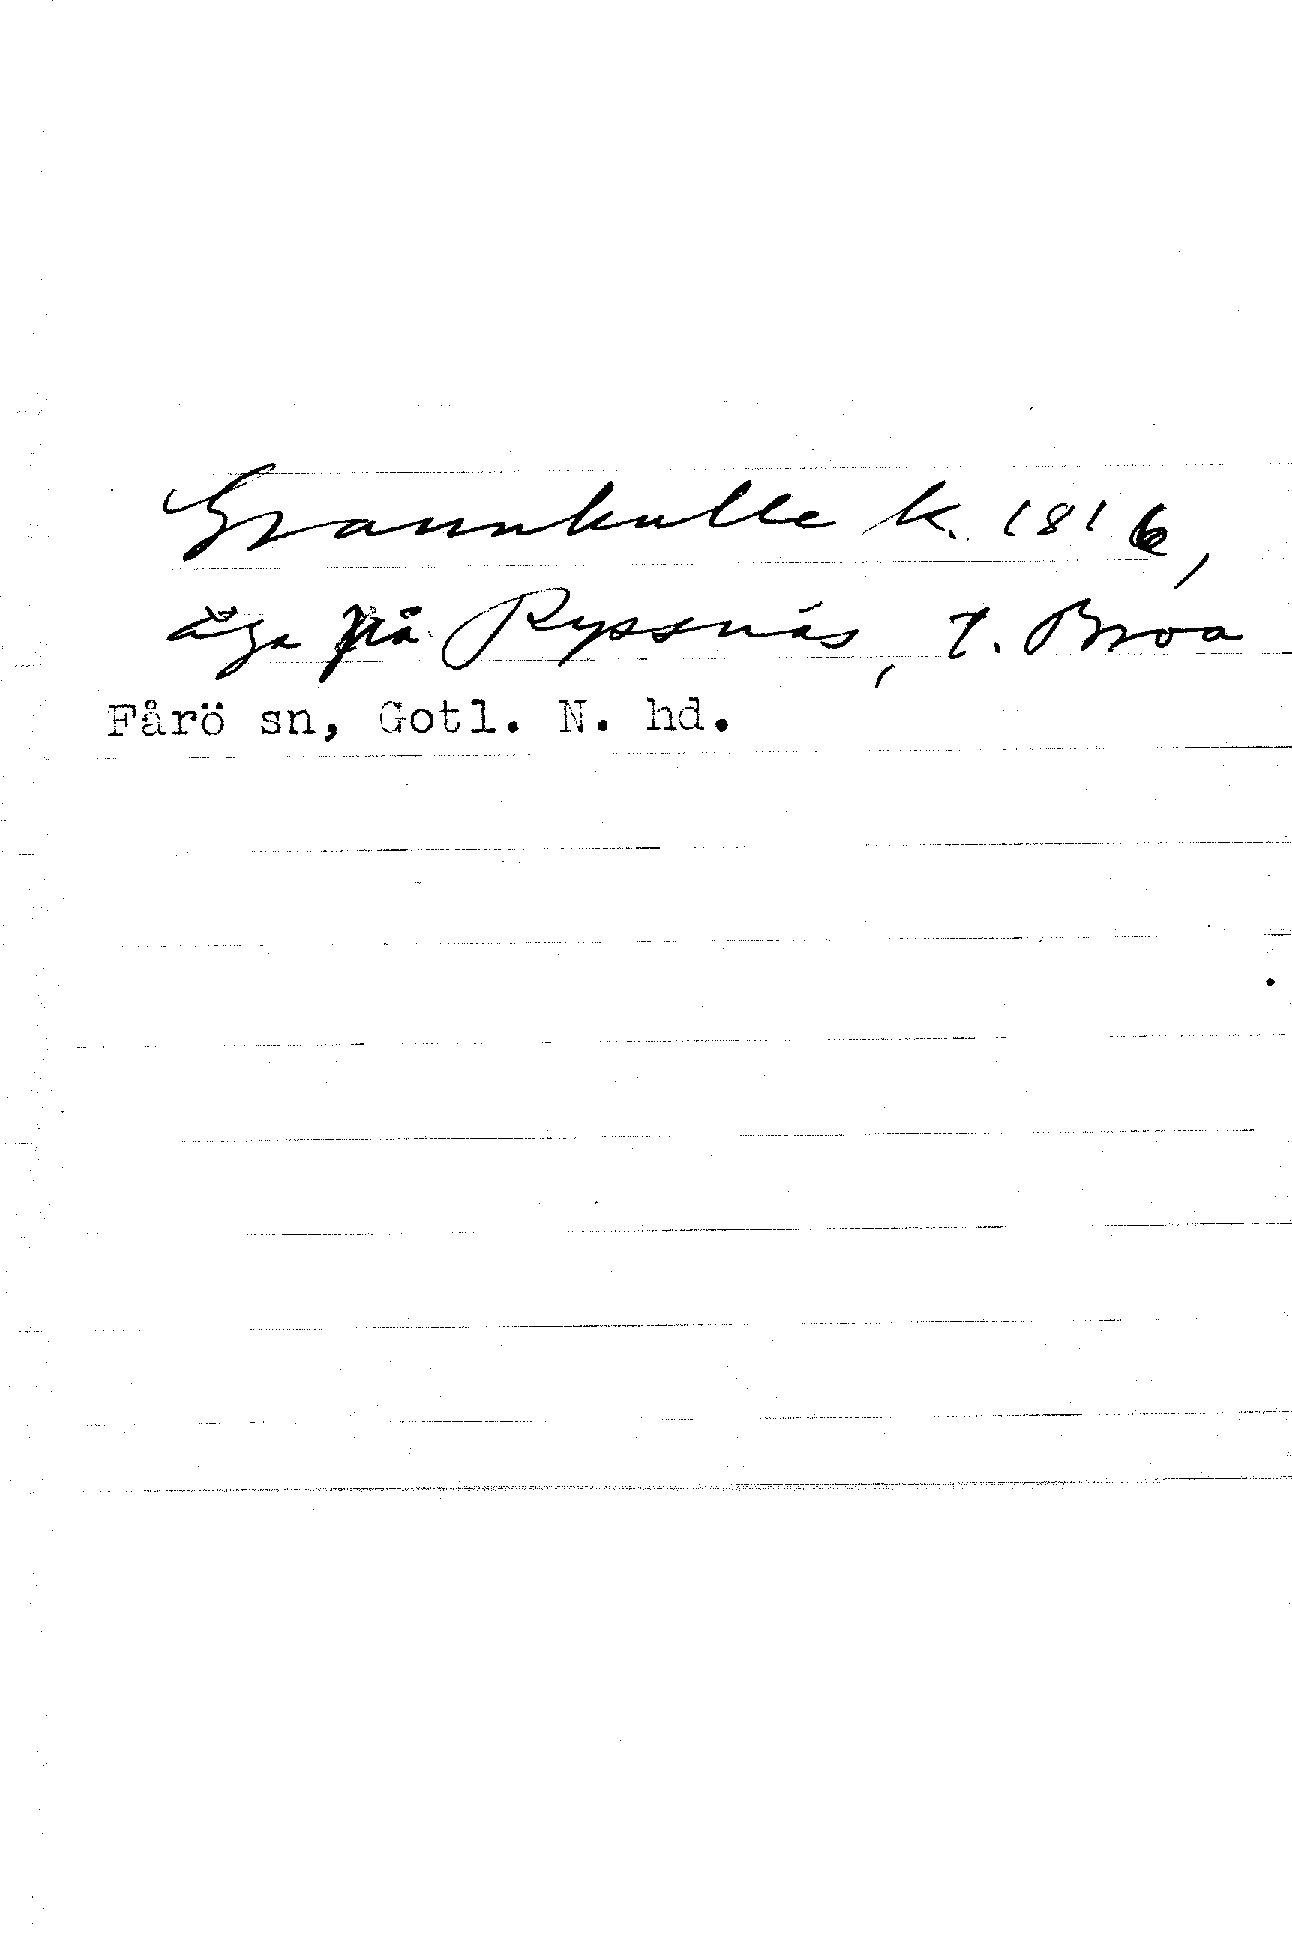 Grannkulle k. 1816,
äga på Ryssnäs, t. Broa
Fårö sn, Gotl. N. hd.